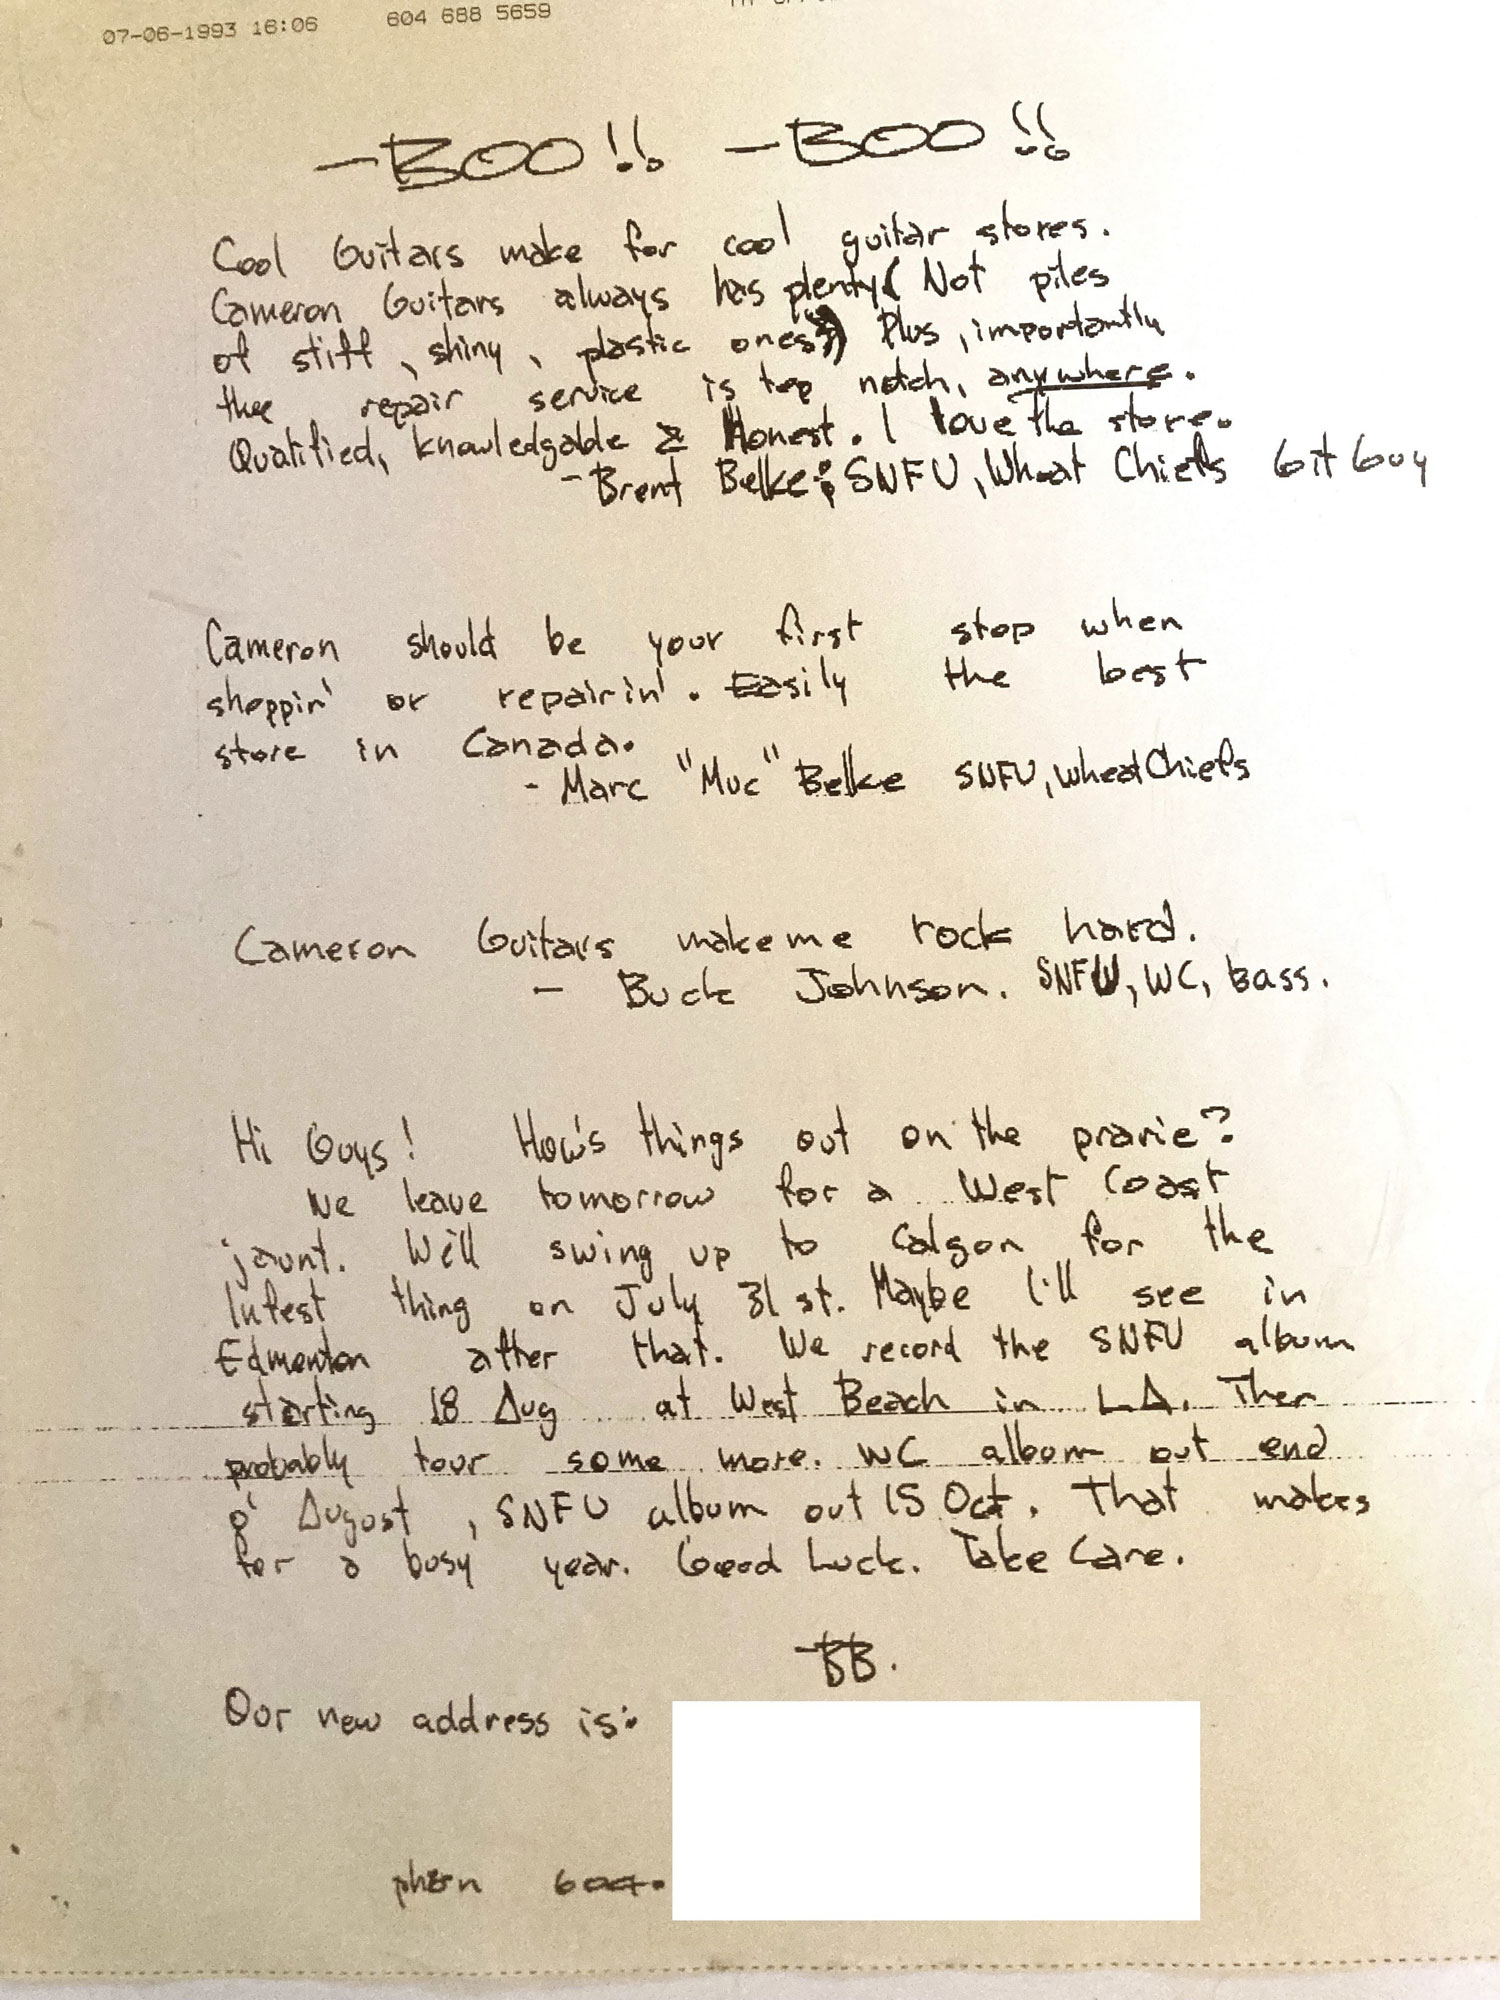 07-06-1993 16:06 604 688 5659
-BOO!! -BOO!!
Cool Guitars make for cool guitar stores.
Cameron Guitars always has plenty( Not piles
of stiff, shiny, plastic ones) Plus, importantly
the repair service is top notch, anywhere.
Qualified, knowledgable & Honest. I love the store.
- Brent Belke; SNFU, Wheat Chiefs Git Guy
Cameron should be your first stop when
shoppin' or repairin'. Easily the best
store in Canada.
- Marc "Muc" Belke SNFU, Wheat Chiefs
Cameron Guitars make me rock hard.
- Buck Johnson. SNFU, WC, bass.
Hi Guys! How's things out on the prarie?
We leave tomorrow for a West Coast
jaunt. We'll swing up to Calgon for the
lufest thing on July 31st. Maybe I'll see in
Edmonton after that. We record the SNFU album
starting 18 Aug at West Beach in LA. Then
probably tour some more. WC album out end
o' August, SNFU album out 15 Oct. That makes
for a busy year. Good Luck. Take Care.
BB.
Our new address is:
phon 604.